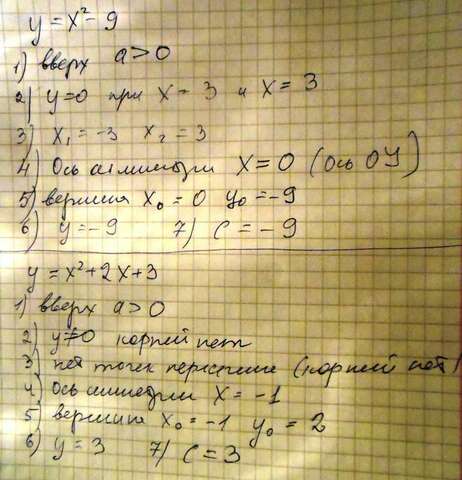 y = x² - 9
1) вверх a > 0
2) y=0 при x = 3 и x = 3
3) x₁ = -3 x₂ = 3
4) Ось симметрии x = 0 (ось OY)
5) вершина x₀ = 0 y₀ = -9
6) y = -9 7) c = -9
y = x² + 2x + 3
1) вверх a > 0
2) y ≠ 0 корней нет
3) нет точек пересечение (корней нет)
4) Ось симметрии x = -1
5) вершина x₀ = -1 y₀ = 2
6) y = 3 7) c = 3